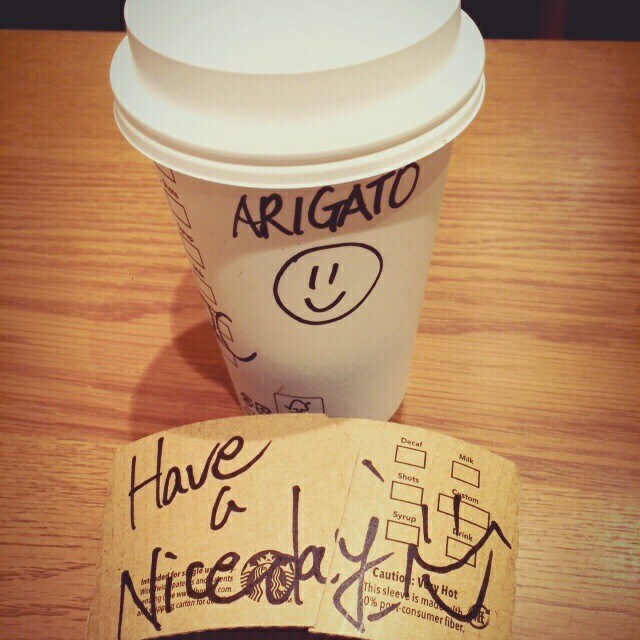 ARIGATO
Have
a
Nice day
Decaf
Milk
Shots
Custom
Syrup
Drink
Intended for single u
Caution: Very Hot
This sleeve is made with
0% post-consumer fiber.